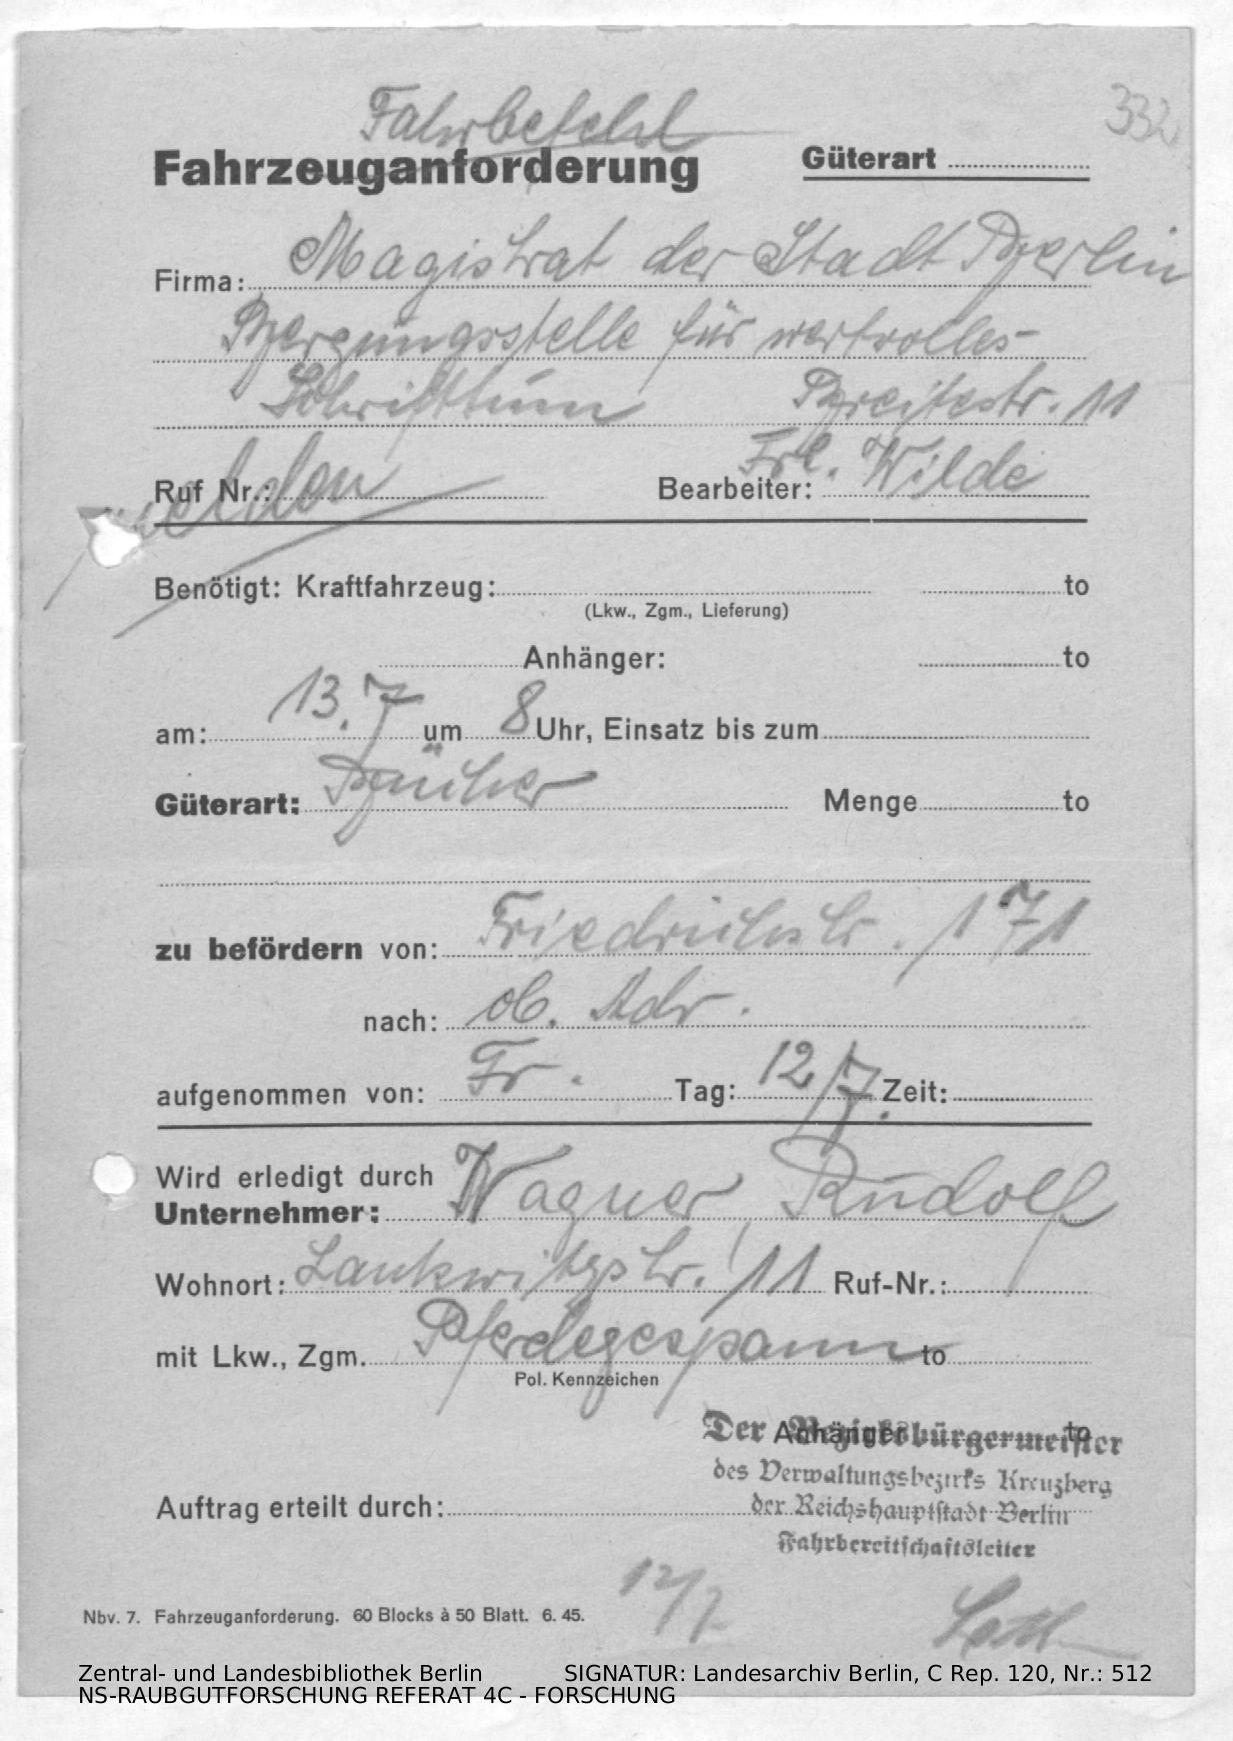 332
Fahrbefehl
Fahrzeuganforderung Güterart
Firma: Magistrat der Stadt Berlin
Bergungsstelle für wertvolles
Schrifttum Breitestr. 11
Ruf Nr.: Bearbeiter: Frl. Wilde
Benötigt: Kraftfahrzeug: to
(Lkw., Zgm., Lieferung)
Anhänger: to
am: 13.7 um 8 Uhr, Einsatz bis zum
Güterart: Bücher Menge to
zu befördern von: Friedrichstr. 171
nach: ob. Adr.
aufgenommen von: Fr. Tag: 12/7. Zeit:
Wird erledigt durch
Unternehmer: Wagner, Rudolf
Wohnort: Lankwitzstr. 11 Ruf-Nr.:
mit Lkw., Zgm. Pferdegespann to
Pol. Kennzeichen
Anhänger to
Der Bezirksbürgermeister
des Verwaltungsbezirks Kreuzberg
Auftrag erteilt durch: der Reichshauptstadt Berlin
Fahrbereitschaftsleiter
12/7
Nbv. 7. Fahrzeuganforderung. 60 Blocks à 50 Blatt. 6. 45.
Zentral- und Landesbibliothek Berlin SIGNATUR: Landesarchiv Berlin, C Rep. 120, Nr.: 512
NS-RAUBGUTFORSCHUNG REFERAT 4C - FORSCHUNG